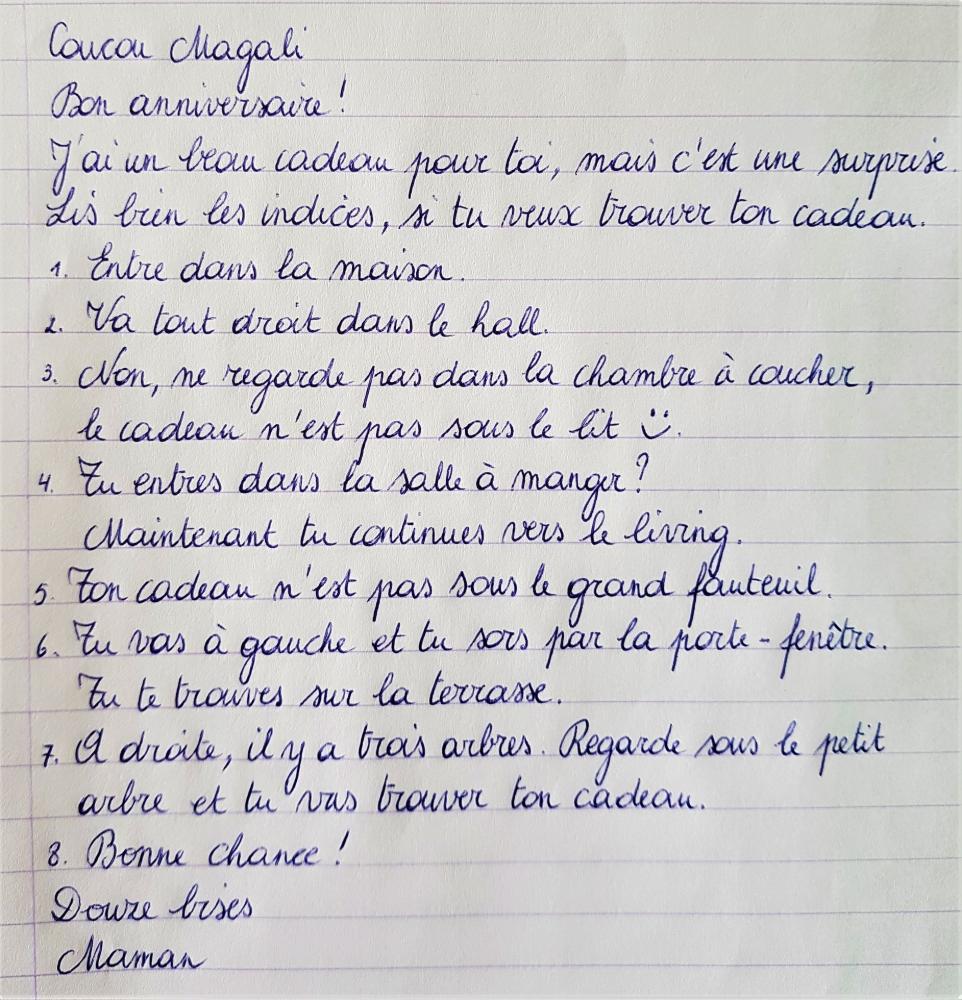 Coucou Magali
Bon anniversaire !
J'ai un beau cadeau pour toi, mais c'est une surprise.
Lis bien les indices, si tu veux trouver ton cadeau.
1. Entre dans la maison.
2. Va tout droit dans le hall.
3. Non, ne regarde pas dans la chambre à coucher,
le cadeau n'est pas sous le lit ü.
4. Tu entres dans la salle à manger ?
Maintenant tu continues vers le living.
5. Ton cadeau n'est pas sous le grand fauteuil.
6. Tu vas à gauche et tu sors par la porte-fenêtre.
Tu te trouves sur la terrasse.
7. A droite, il y a trois arbres. Regarde sous le petit
arbre et tu vas trouver ton cadeau.
8. Bonne chance !
Douze bises
Maman